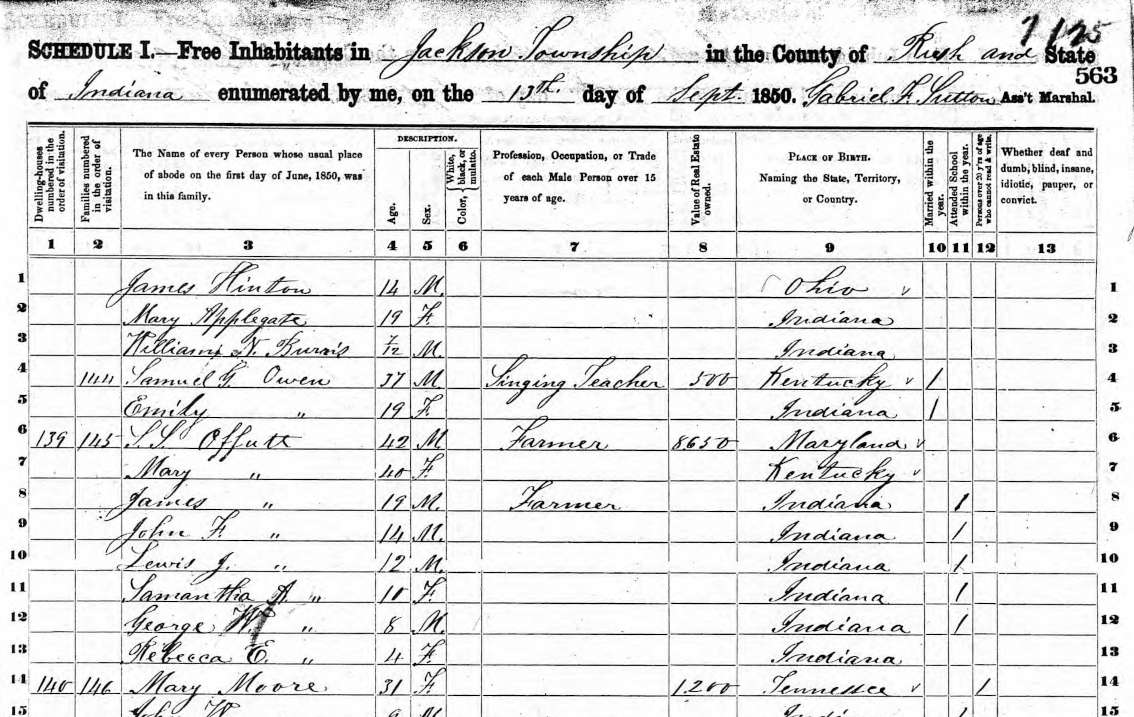 7 125
SCHEDULE I.—Free Inhabitants in Jackson Township in the County of Rush and State
563
of Indiana enumerated by me, on the 13th. day of Sept. 1850. Gabriel F. Sutton Ass't Marshal.
Dwelling-houses numbered in the order of visitation.
Families numbered in the order of visitation.
The Name of every Person whose usual place of abode on the first day of June, 1850, was in this family.
DESCRIPTION.
Age.
Sex.
Color, { White, black, or mulatto.
Profession, Occupation, or Trade of each Male Person over 15 years of age.
Value of Real Estate owned.
PLACE OF BIRTH. Naming the State, Territory, or Country.
Married within the year.
Attended School within the year.
Persons over 20 y'rs of age who cannot read & write.
Whether deaf and dumb, blind, insane, idiotic, pauper, or convict.
1 2 3 4 5 6 7 8 9 10 11 12 13
1 James Hinton 14 M. Ohio v 1
2 Mary Applegate 19 F. Indiana 2
3 William N. Burris 7/12 M. Indiana 3
4 144 Samuel G Owen 37 M Singing Teacher 500 Kentucky v 1 4
5 Emily " 19 F. Indiana 1 5
6 139 145 S. S. Offutt 42 M Farmer 8650 Maryland v 6
7 Mary " 40 F. Kentucky v 7
8 James " 19 M. Farmer Indiana 1 8
9 John F. " 14 M. Indiana 1 9
10 Lewis J. " 12 M. Indiana 1 10
11 Samantha A " 10 F. Indiana 1 11
12 George W. " 8 M. Indiana 1 12
13 Rebecca E. " 4 F. Indiana 13
14 140 146 Mary Moore 31 F. 1200 Tennessee v 1 14
15 John W. 9 M Indi 1 15